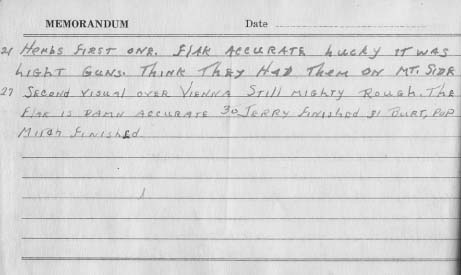 MEMORANDUM Date
21 HERBS FIRST ONE. FLAK ACCURATE LUCKY IT WAS
LIGHT GUNS. THINK THEY HAD THEM ON MT. SIDE
27 SECOND VISUAL OVER VIENNA STILL MIGHTY ROUGH. THE
FLAK IS DAMN ACCURATE 30 JERRY FINISHED 31 BURT, POP
FINISHED